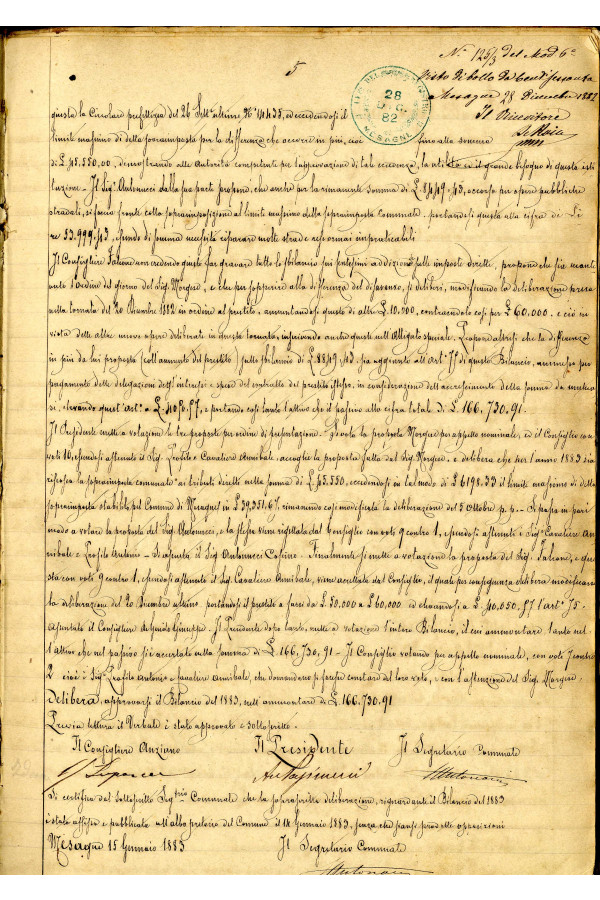 N. 125/3 del Mod 6°
5
Visto di bollo da Centesimi
Mesagne 28 Dicembre 1882
Il Ricevitore
28
DIC
82
MESAGNE
questa la Circolare prefettizia del 26 Sett. ultimo N° 14435, ed eccedendosi il
limite massimo della sovraimposta per la differenza che occorre in più, cioè fino alla somma
di £. 45,550.00, dimostrando alle Autorità competenti per l'approvazione di tale eccedenza, la utilità ed il grande bisogno di questa isti
tuzione. Il Sig. Antonucci dalla sua parte propone, che anche per la rimanente somma di £. 8449.43, occorso per opere pubbliche
stradali, si faccia fronte colla sopraimposizione al limite massimo della sopraimposta Comunale, portandosi questa alla cifra di Li
re 53.999.43, essendo di somma necessità riparare molte strade resformai impraticabili
Il Consigliere Falcone non credendo giusto far gravare tutto lo sbilancio sui centesimi addizionali alle imposte dirette, propone che sia mante
nuto l'ordine del giorno del Sig. Morgese, e che per sopperire alla differenza del disavanzo, si deliberi, modificando la deliberazione presa
nella tornata del 20 Settembre 1882 in ordine al prestito, aumentandosi questo di altre £. 10.000, contraendolo così per £. 60.000 e ciò in
vista delle altre nuove opere deliberate in questa tornata, inscrivendo anche queste nell'Allegato speciale. Propone altresì che la differenza
in più da lui proposta coll'aumento del prestito sullo sbilancio di £. 8849.43, sia aggiunta all'Art. 75 di questo Bilancio, ammesso per
pagamento delle delegazioni degl'interessi e spese del contratto del prestito stesso, in considerazione dell'accrescimento della somma da mutuar
si, elevando quest'Art. a £. 4050.57, e portando così tanto l'attivo che il passivo alla cifra totale di £. 166,730.91.
Il Presidente mette a votazione le tre proposte per ordine di presentazione. Si vota la proposta Morgese per appello nominale, ed il Consiglio con
voti 10, essendosi astenuto il Sig. Profilo e Cavaliere Annibale, accoglie la proposta fatta dal Sig. Morgese, e delibera che per l'anno 1883 sia
riscossa la sopraimposta comunale ai tributi diretti nella somma di £. 45.550, eccedendosi in tal modo di £ 6198.33 il limite massimo di detta
sopraimposta stabilito pel Comune di Mesagne in £. 39,351.67, rimanendo così modificata la deliberazione del 5 Ottobre p. p. - Si passa in pari
modo a votare la proposta del Sig. Antonucci, e la stessa viene rigettata dal Consiglio con voti 9 contro 1, essendosi astenuti i Sig. Cavaliere An
nibale e Profilo Antonio - Si assenta il Sig. Antonucci Cosimo - Finalmente si mette a votazione la proposta del Sig. Falcone, e que
sta con voti 9 contro 1, essendosi astenuto il Sig. Cavaliere Annibale, viene accettata dal Consiglio, il quale per conseguenza delibera modificarsi
la deliberazione del 20 Settembre ultimo portandosi il prestito a farsi da £ 50.000 a £ 60.000 ed elevandosi a £. 4050.57 l'art. 75 -
Assentato il Consigliere Giuseppe - Il Presidente dopo tanto, mette a votazione l'intero Bilancio, il cui ammontare, tanto nel
l'Attivo che nel passivo si è accertato nella somma di £. 166,730.91 - Il Consiglio votando per appello nominale, con voti 7 contro
2 cioè i Sig. Profilo Antonio e Cavaliere Annibale, che domandano si fosse constare del loro voto, e con l'astensione del Sig. Morgese
Delibera, approvarsi il Bilancio del 1883, nell'ammontare di £. 166.730.91
Previa lettura il Verbale è stato approvato e sottoscritto.
Il Consigliere Anziano Il Presidente Il Segretario Comunale
Si certifica dal sottoscritto Seg.rio Comunale che la soprascritta deliberazione, riguardante il Bilancio del 1883
è stata affissa e pubblicata all'albo pretorio del Comune il 14 Gennaio 1883, senza che siansi prodotte opposizioni
Mesagne 15 Gennaio 1883 Il Segretario Comunale